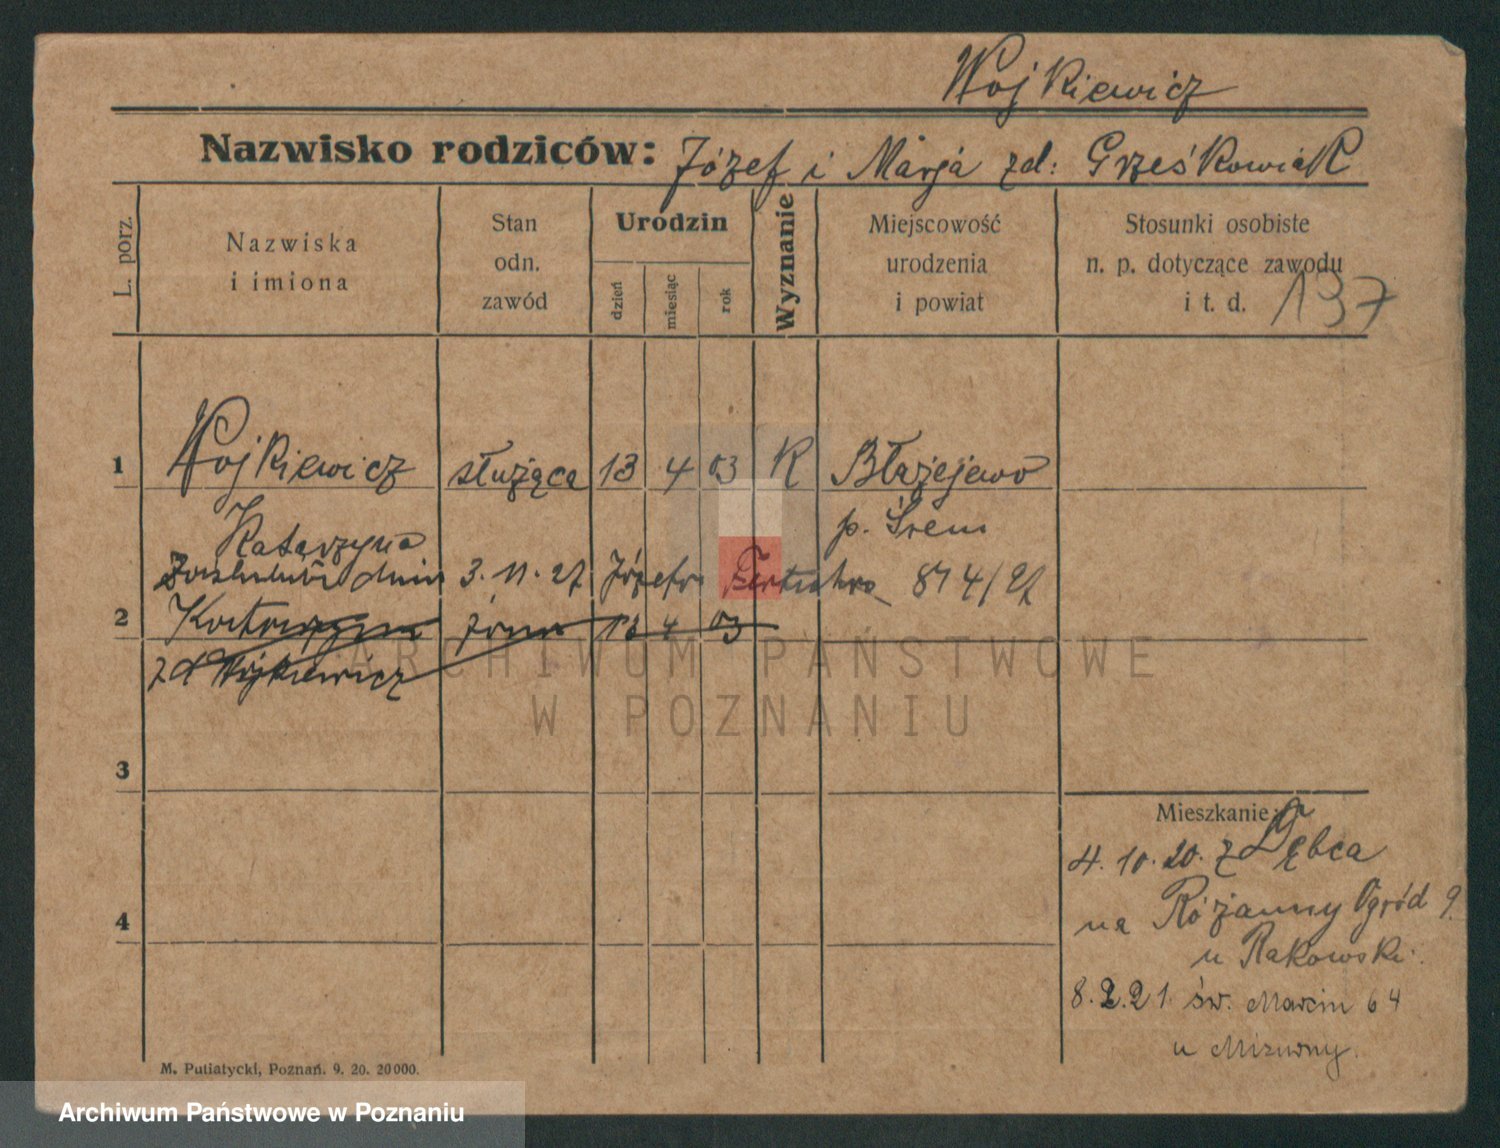 Wojkiewicz
Nazwisko rodziców: Józef i Marja zd: Grześkowiak
L. porz.
Nazwiska
i imiona
Stan
odn.
zawód
Urodzin
dzień
miesiąc
rok
Wyznanie
Miejscowość
urodzenia
i powiat
Stosunki osobiste
n. p. dotyczące zawodu
i t. d.
137
1 Wojkiewicz służąca 13 4 03 K Błażejewo
Katarzyna p. Śrem
dnia 3. 11. 27 Józefa 874/27
2 Katarzyna żona 13 4 03
zd Wojkiewicz
ARCHIWUM PAŃSTWOWE
W POZNANIU
3
Mieszkanie:
4. 10. 20. z Dębca
4
na Różanny Ogród 9.
u Rakowski.
8. 2. 21. św. Marcin 64
u
M. Putiatycki, Poznań. 9. 20. 20000.
Archiwum Państwowe w Poznaniu